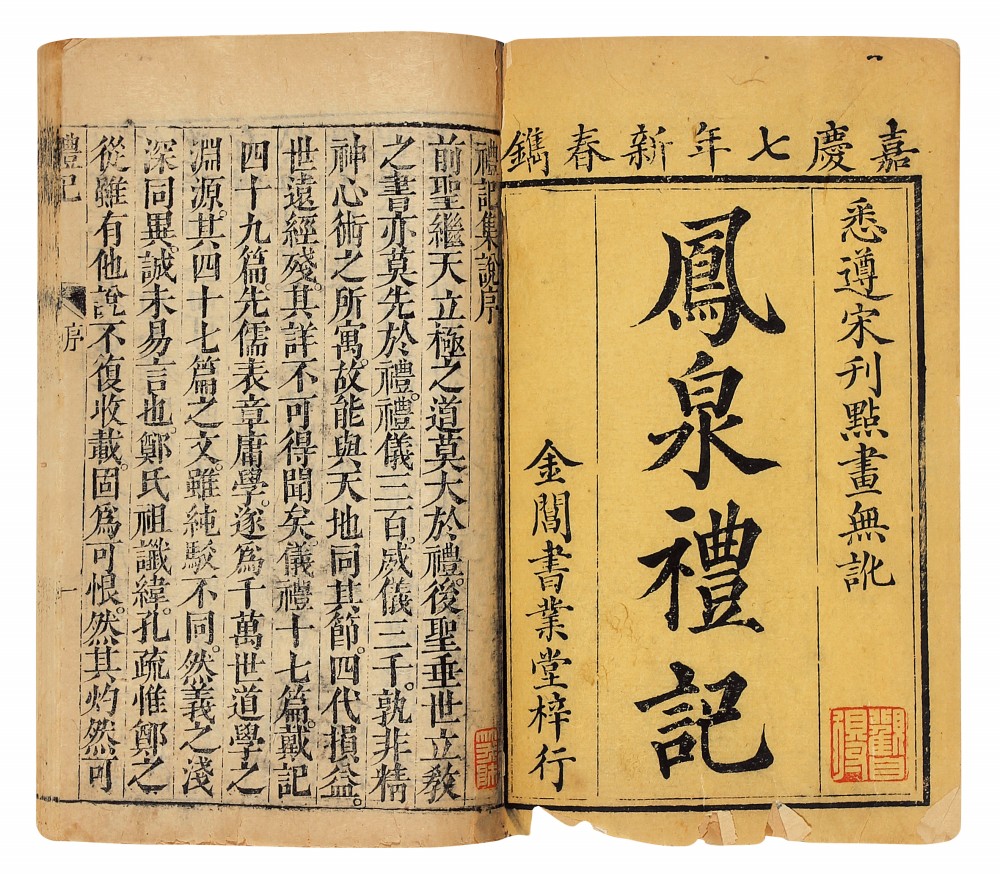 嘉慶七年新春鐫
悉遵宋刊點畫無訛
鳳泉禮記
金閶書業堂梓行
禮記集說序
前聖繼天立極之道莫大於禮。後聖垂世立敎
之書亦莫先於禮。禮儀三百。威儀三千。孰非精
神心術之所寓。故能與天地同其節。四代損益。
世遠經殘。其詳不可得聞矣。儀禮十七篇。戴記
四十九篇。先儒表章庸學。遂爲千萬世道學之
淵源。其四十七篇之文。雖純駁不同。然義之淺
深同異。誠未易言也。鄭氏祖讖緯。孔疏惟鄭之
從。雖有他說。不復收載。固爲可恨。然其灼然可
禮記
序
一